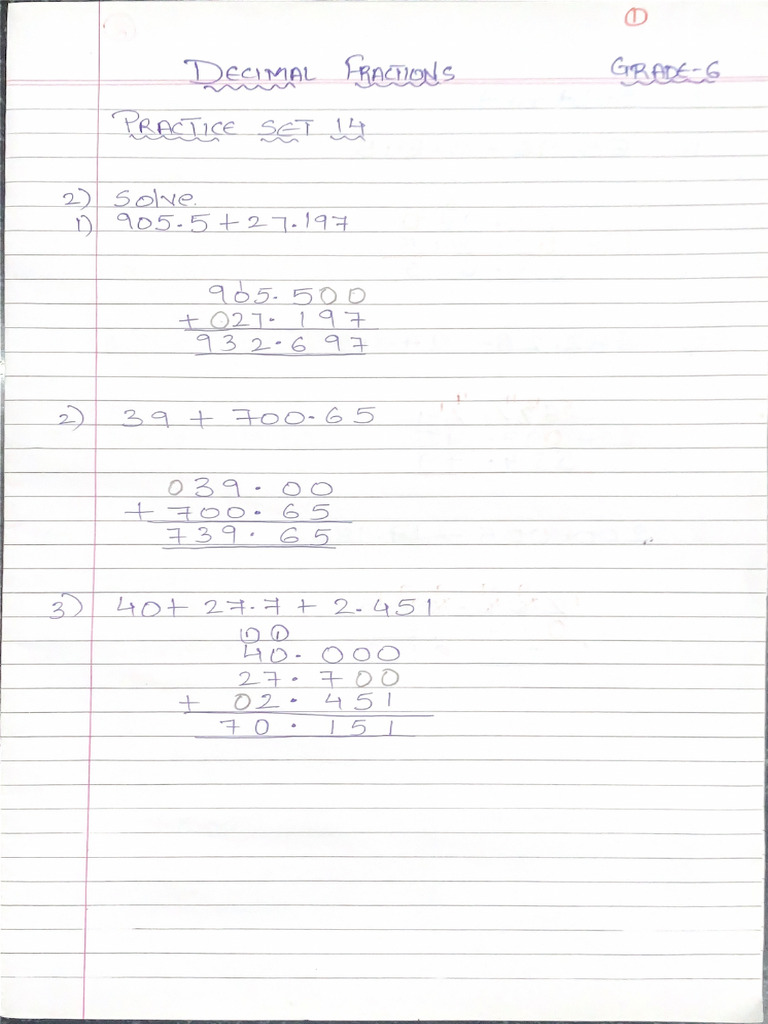 ①
DECIMAL FRACTIONS GRADE-6
PRACTICE SET 14
2) Solve.
1) 905.5 + 27.197
1
905.500
+ 027.197
932.697
2) 39 + 700.65
039.00
+ 700.65
739.65
3) 40 + 27.7 + 2.451
① ①
40.000
27.700
+ 02.451
70.151